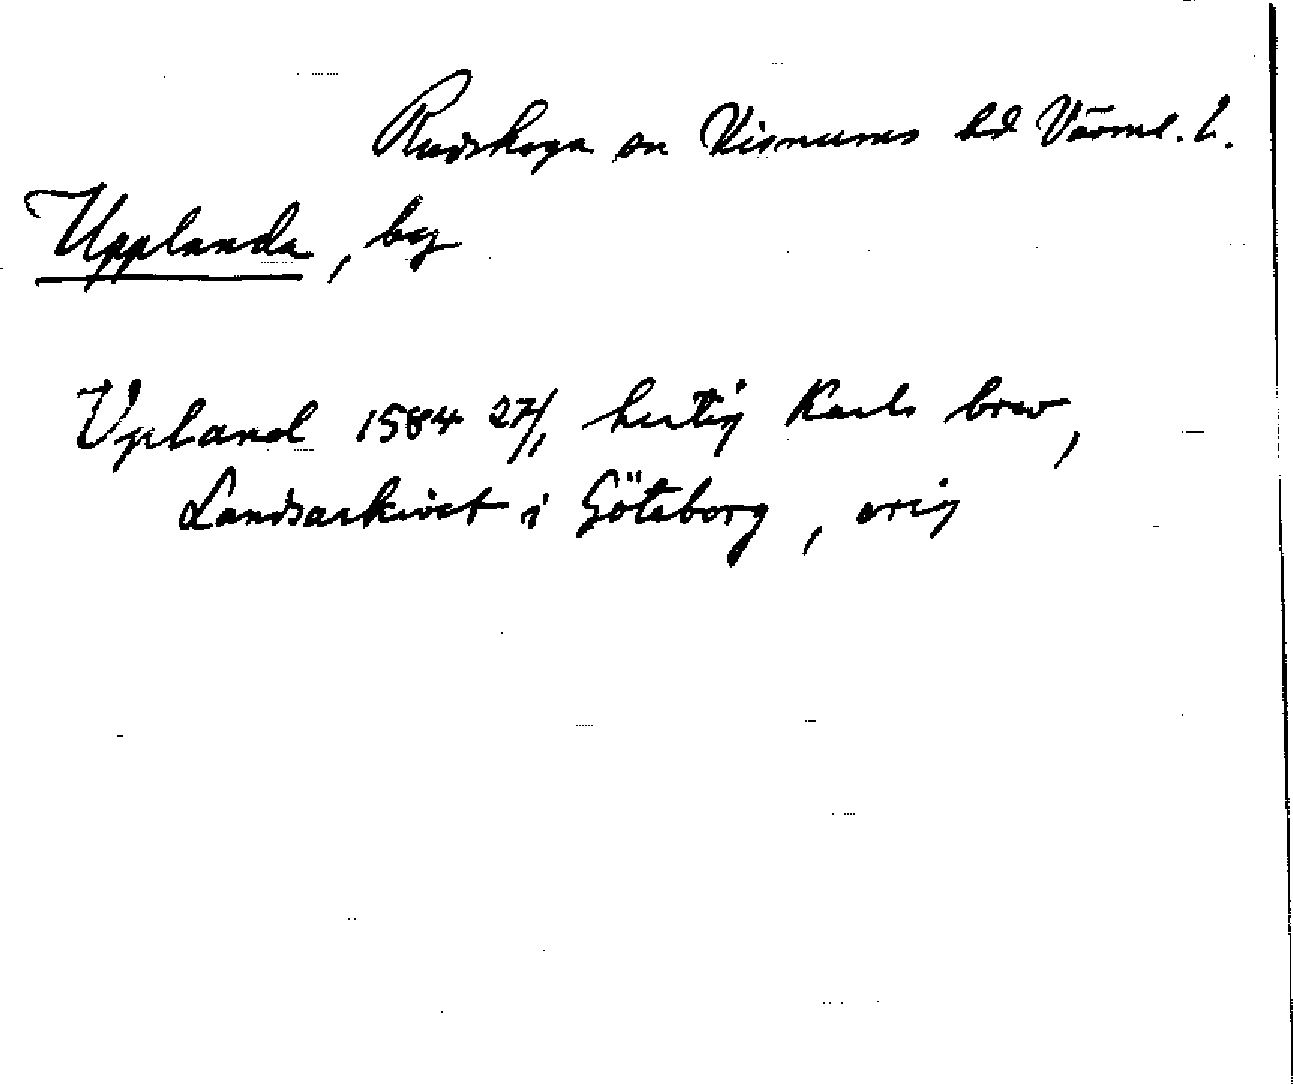 Rudskoga sn Visnums hd Värml. l.
Upplanda, by
Upland 1584 27/1, hertig Karls brev,
Landsarkivet i Göteborg, orig